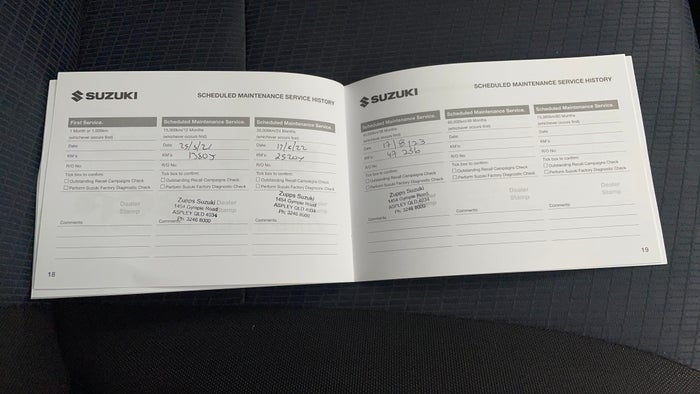 SUZUKI
SCHEDULED MAINTENANCE SERVICE HISTORY
First Service.
1 Month or 1,000km
(whichever occurs first)
Date:
KM's:
R/O No:
Tick box to confirm:
Outstanding Recall Campaigns Check
Perform Suzuki Factory Diagnostic Check
Dealer
Stamp
Comments:
Scheduled Maintenance Service.
15,000km/12 Months
(whichever occurs first)
Date: 25/5/21
KM's:
R/O No:
Tick box to confirm:
Outstanding Recall Campaigns Check
Perform Suzuki Factory Diagnostic Check
Zupps Suzuki
1454 Gympie Road
ASPLEY QLD 4034
Ph: 3246 8000
Dealer
Stamp
Comments:
Scheduled Maintenance Service.
30,000km/24 Months
(whichever occurs first)
Date:
KM's:
R/O No:
Tick box to confirm:
Outstanding Recall Campaigns Check
Perform Suzuki Factory Diagnostic Check
Zupps Suzuki
1454 Gympie Road
ASPLEY QLD 4034
Ph: 3246 8000
Comments:
18
SUZUKI
SCHEDULED MAINTENANCE SERVICE HISTORY
Scheduled Maintenance Service.
(whichever occurs first)
Date: 17/8/23
KM's: 47 256
R/O No:
Tick box to confirm:
Outstanding Recall Campaigns Check
Perform Suzuki Factory Diagnostic Check
Zupps Suzuki
1454 Gympie Road
ASPLEY QLD 4034
Ph: 3246 8000
Comments:
Scheduled Maintenance Service.
(whichever occurs first)
Date:
KM's:
R/O No:
Tick box to confirm:
Outstanding Recall Campaigns Check
Perform Suzuki Factory Diagnostic Check
Dealer
Stamp
Comments:
Scheduled Maintenance Service.
(whichever occurs first)
Date:
KM's:
R/O No:
Tick box to confirm:
Outstanding Recall Campaigns Check
Perform Suzuki Factory Diagnostic Check
Dealer
Stamp
Comments:
19